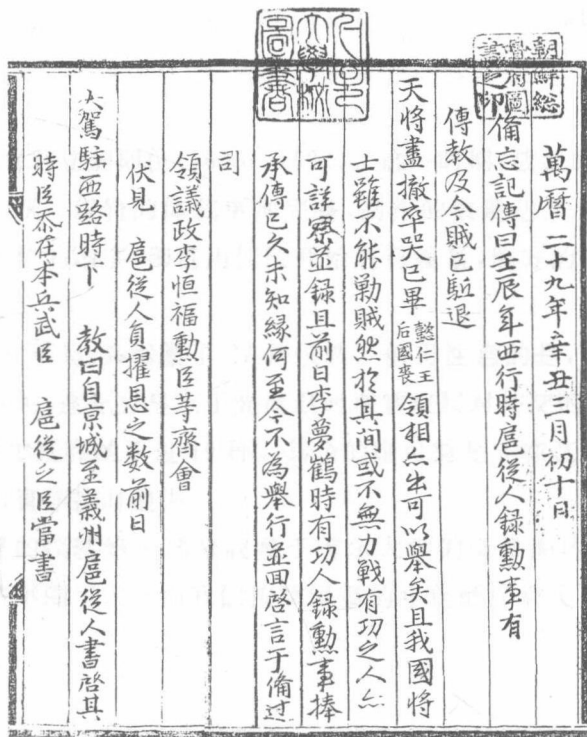 萬曆二十九年辛丑三月初十日
備忘記傳曰壬辰年西行時扈從人錄勳事有
傳教及今賊已駈退
天將盡撤卒哭已畢懿仁王后國喪領相亦出可以舉矣且我國將
士雖不能勦賊然於其间或不無力戰有功之人亦
可詳察並錄且前日李夢鶴時有功人錄勳事捧
承傳已久未知緣何至今不為舉行並回啓言于備邊
司
領議政李恒福勳臣等齊會
伏見扈從人負擢恩之数前日
大駕駐西路時下教曰自京城至義州扈從人書啓其
時臣忝在本兵武臣扈從之臣當書
朝鮮総督府圖書之印